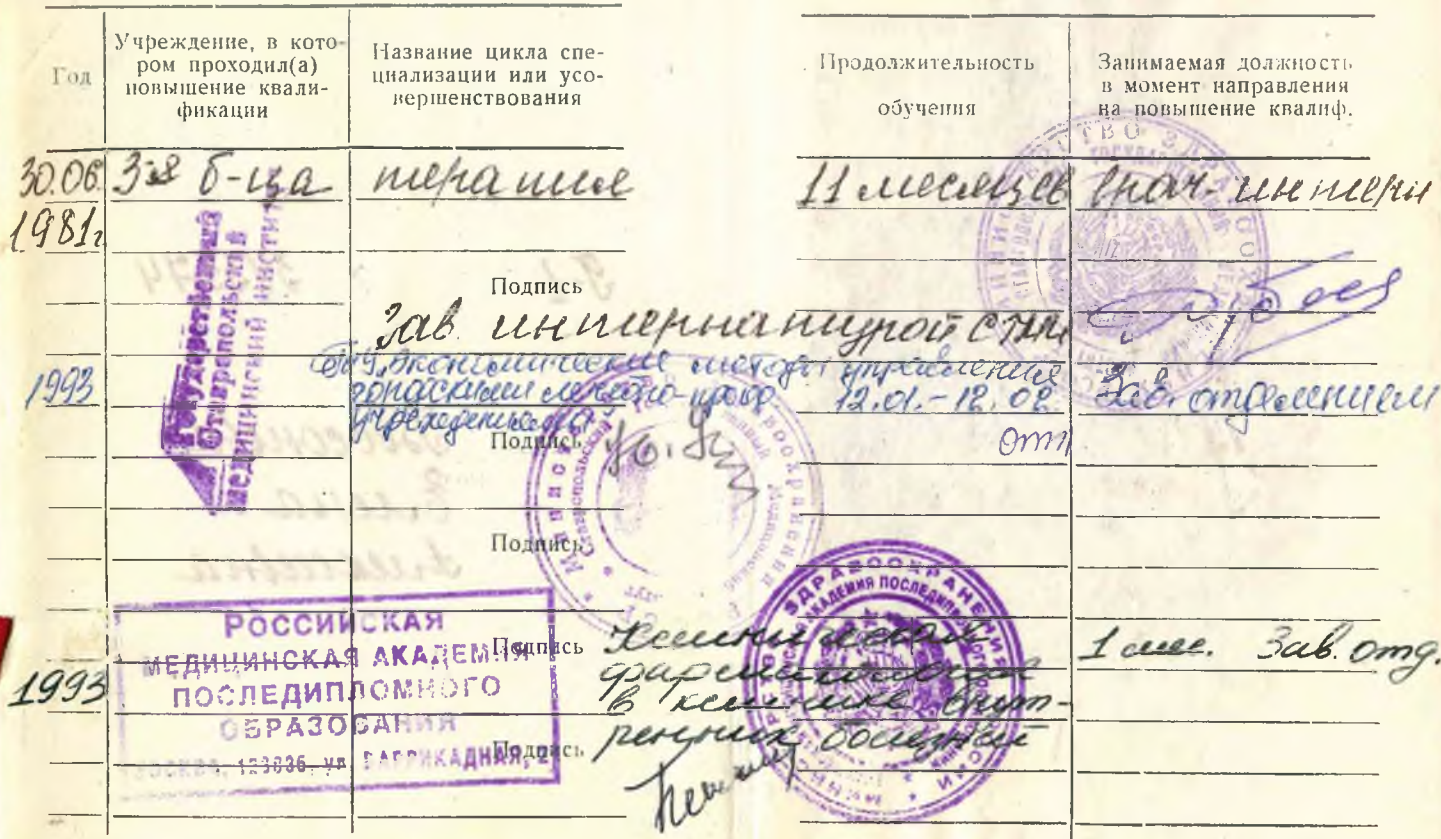 Год
Учреждение, в кото-
ром проходил(а)
повышение квали-
фикации
Название цикла спе-
циализации или усо-
вершенствования
Продолжительность
обучения
Занимаемая должность
в момент направления
на повышение квалиф.
30.06. 3-я б-ца терапия 11 месяцев врач-интерн
1981г
Государственный
Ставропольский
медицинский институт
Подпись
Зав. интернатурой
1993 экономические методы управления
учреждениями 12.01.-12.02 Зав. отделением
Подпись
Подпись
РОССИЙСКАЯ
МЕДИЦИНСКАЯ АКАДЕМИЯ
ПОСЛЕДИПЛОМНОГО
ОБРАЗОВАНИЯ
МОСКВА, 123836, УЛ. БАРРИКАДНАЯ, 2
Подпись
1993 Клиническая
фармакология
в клинике внут-
ренних болезней
1 мес. Зав. отд.
Подпись